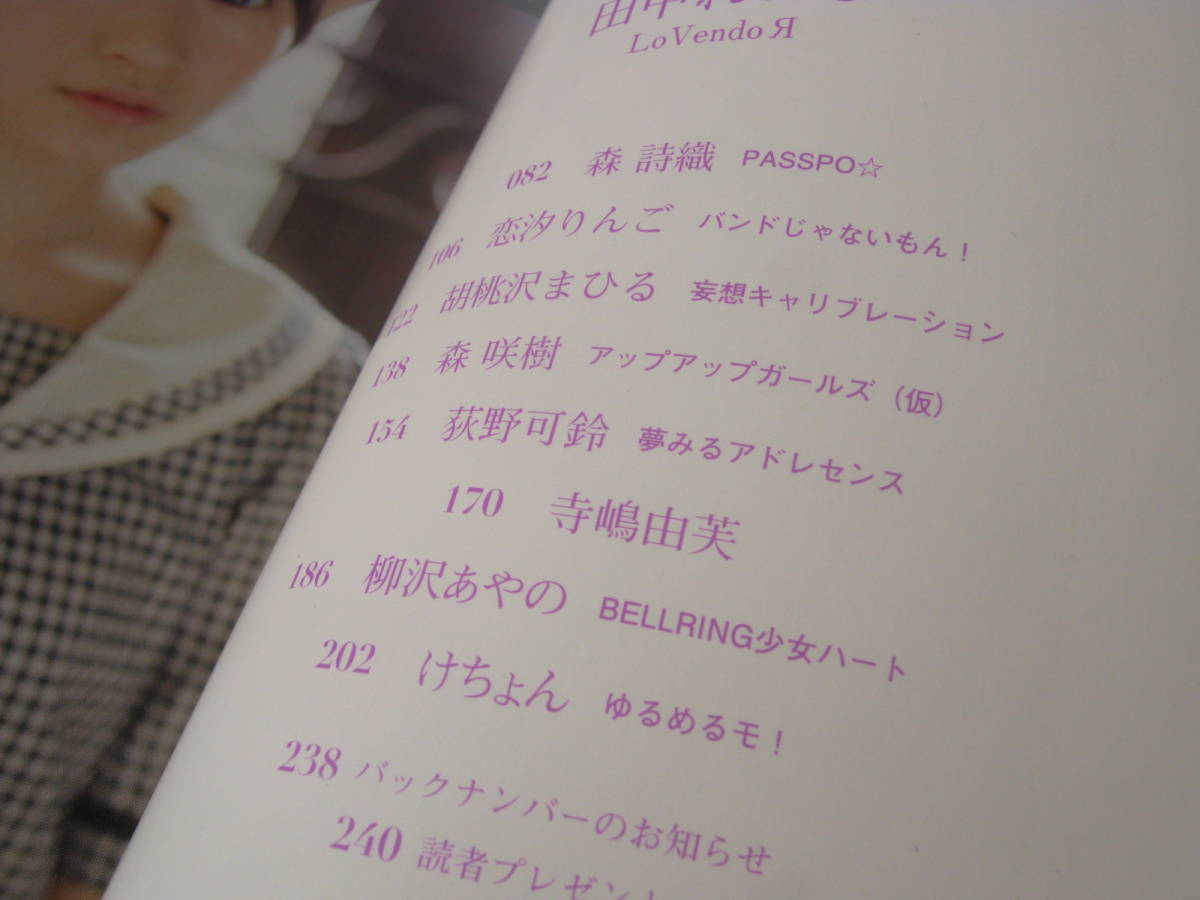 LoVendoЯ
082 森 詩織 PASSPO☆
106 恋汐りんご バンドじゃないもん！
122 胡桃沢まひる 妄想キャリブレーション
138 森 咲樹 アップアップガールズ（仮）
154 荻野可鈴 夢みるアドレセンス
170 寺嶋由芙
186 柳沢あやの BELLRING少女ハート
202 けちょん ゆるめるモ！
238 バックナンバーのお知らせ
240 読者プレゼント